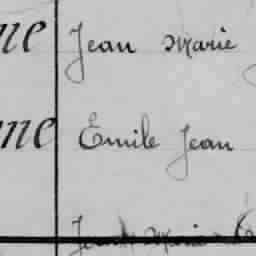 ne Jean Marie
ne Emile Jean